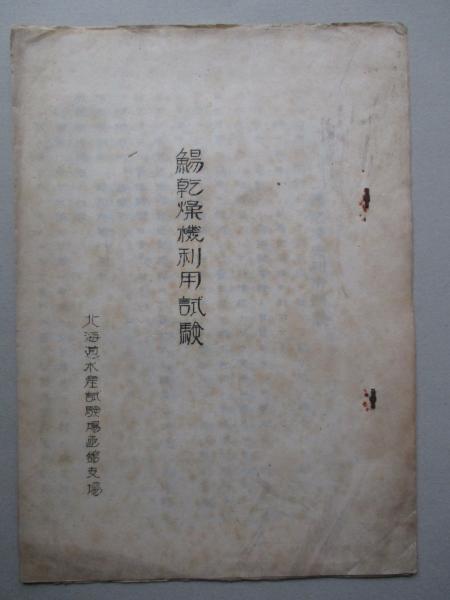 鯣乾燥機利用試験
北海道水産試験場函館支場